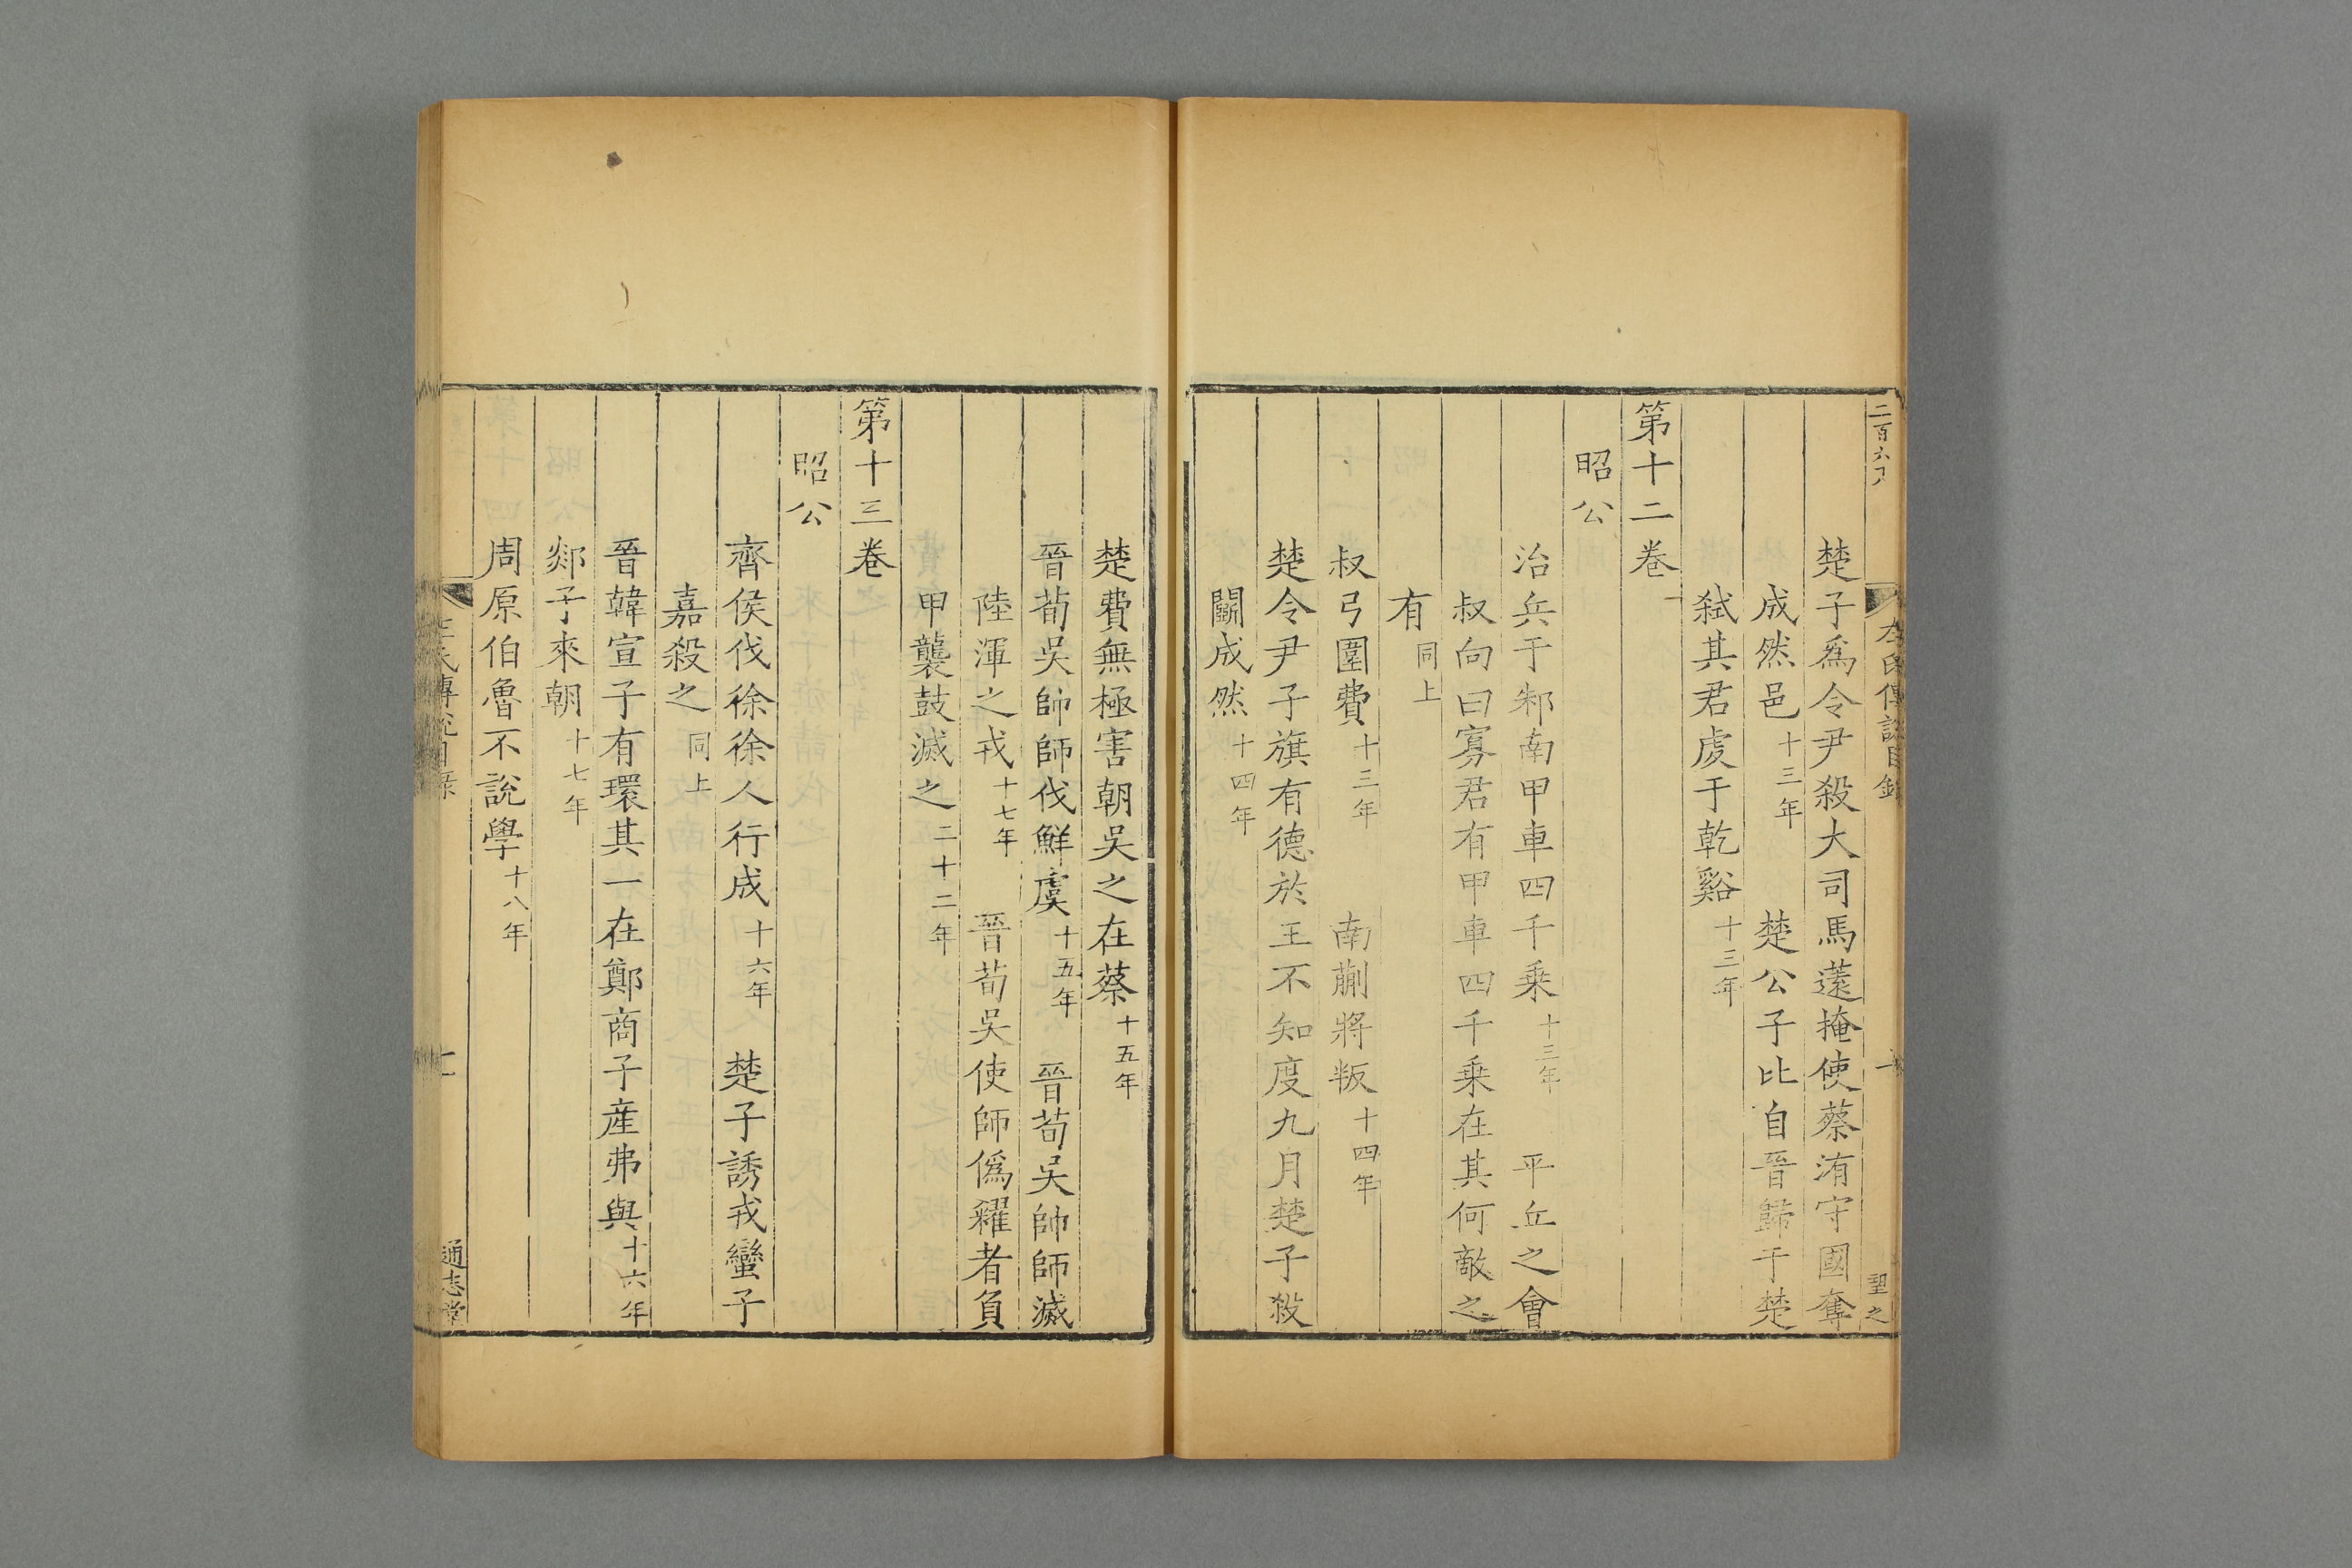 左氏傳說目録
楚子爲令尹殺大司馬薳掩使蔡洧守國奪
成然邑 十三年 楚公子比自晉歸于楚
弒其君虔于乾谿 十三年
第十二卷
昭公
治兵于邾南甲車四千乗 十三年 平丘之會
叔向曰寡君有甲車四千乗在其何敵之
有 同上
叔弓圍費 十三年 南蒯將叛 十四年
楚令尹子旗有德於王不知度九月楚子殺
鬭成然 十四年
楚費無極害朝吳之在蔡 十五年
晉荀吳帥師伐鮮虞 十五年 晉荀吳帥師滅
陸渾之戎 十七年 晉荀吳使師僞糴者負
甲襲鼓滅之 二十二年
第十三卷
昭公
齊侯伐徐徐人行成 十六年 楚子誘戎蠻子
嘉殺之 同上
晉韓宣子有環其一在鄭商子産弗與 十六年
郯子來朝 十七年
周原伯魯不説學 十八年
通志堂